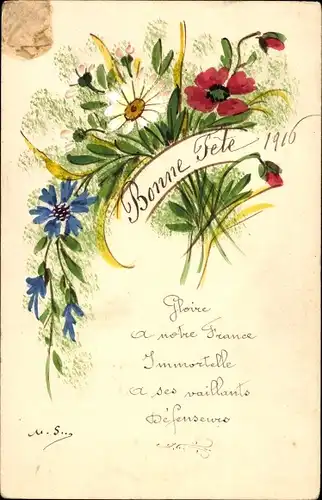 Bonne Fête 1916
Gloire
A notre France
Immortelle
A ses vaillants
Défenseurs
M. S.